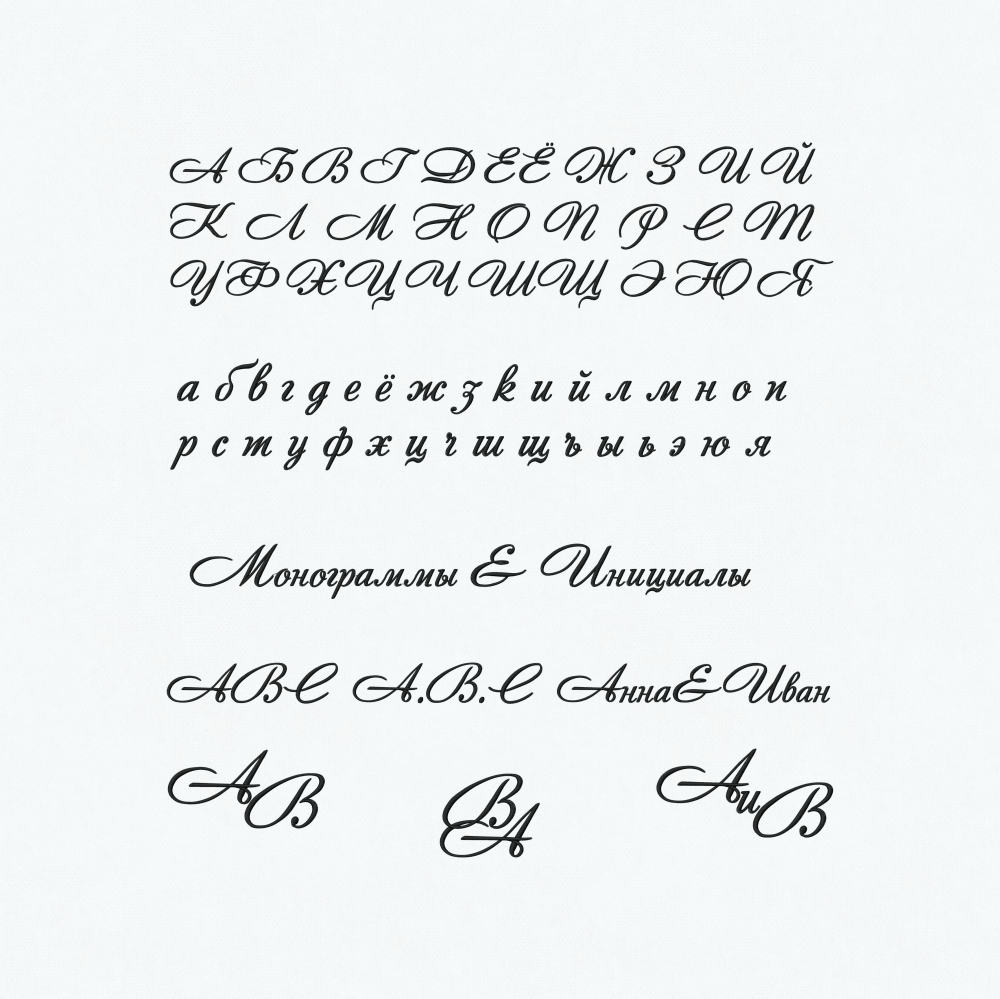 А Б В Г Д Е Ё Ж З И Й
К Л М Н О П Р С Т
У Ф Х Ц Ч Ш Щ Э Ю Я
а б в г д е ё ж з к и й л м н о п
р с т у ф х ц ч ш щ ъ ы ь э ю я
Монограммы & Инициалы
АВС А.В.С Анна&Иван
АВ ВА АиВ